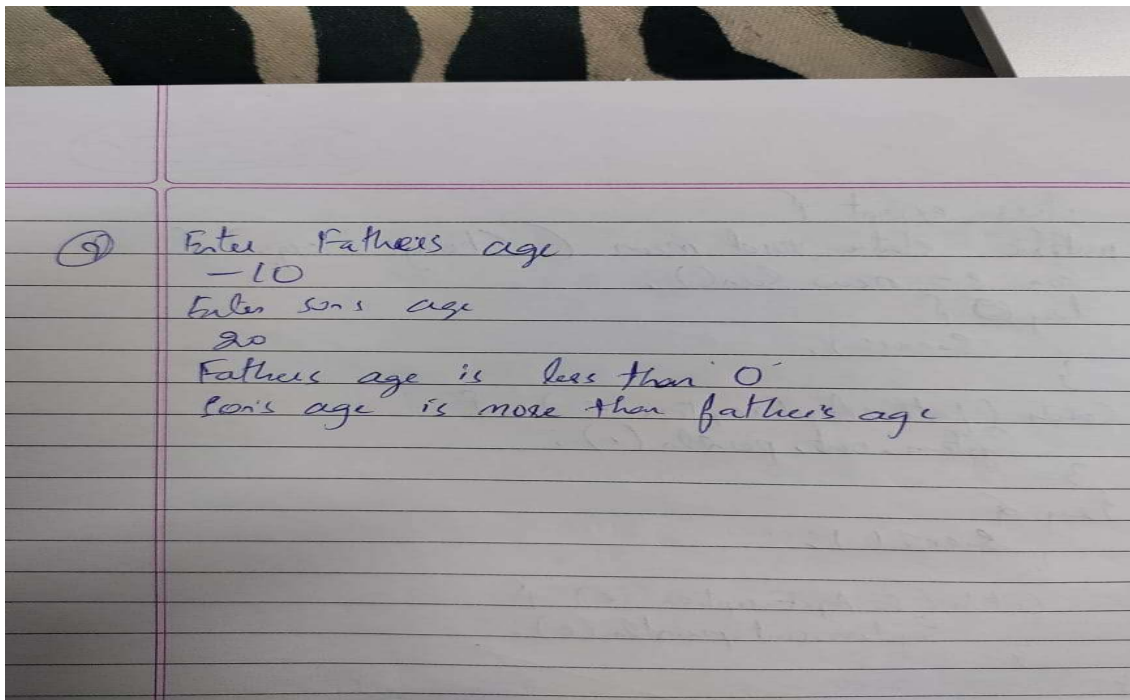 Enter Fathers age
-10
Enter sons age
20
Fathers age is less than 0
Son's age is more than father's age